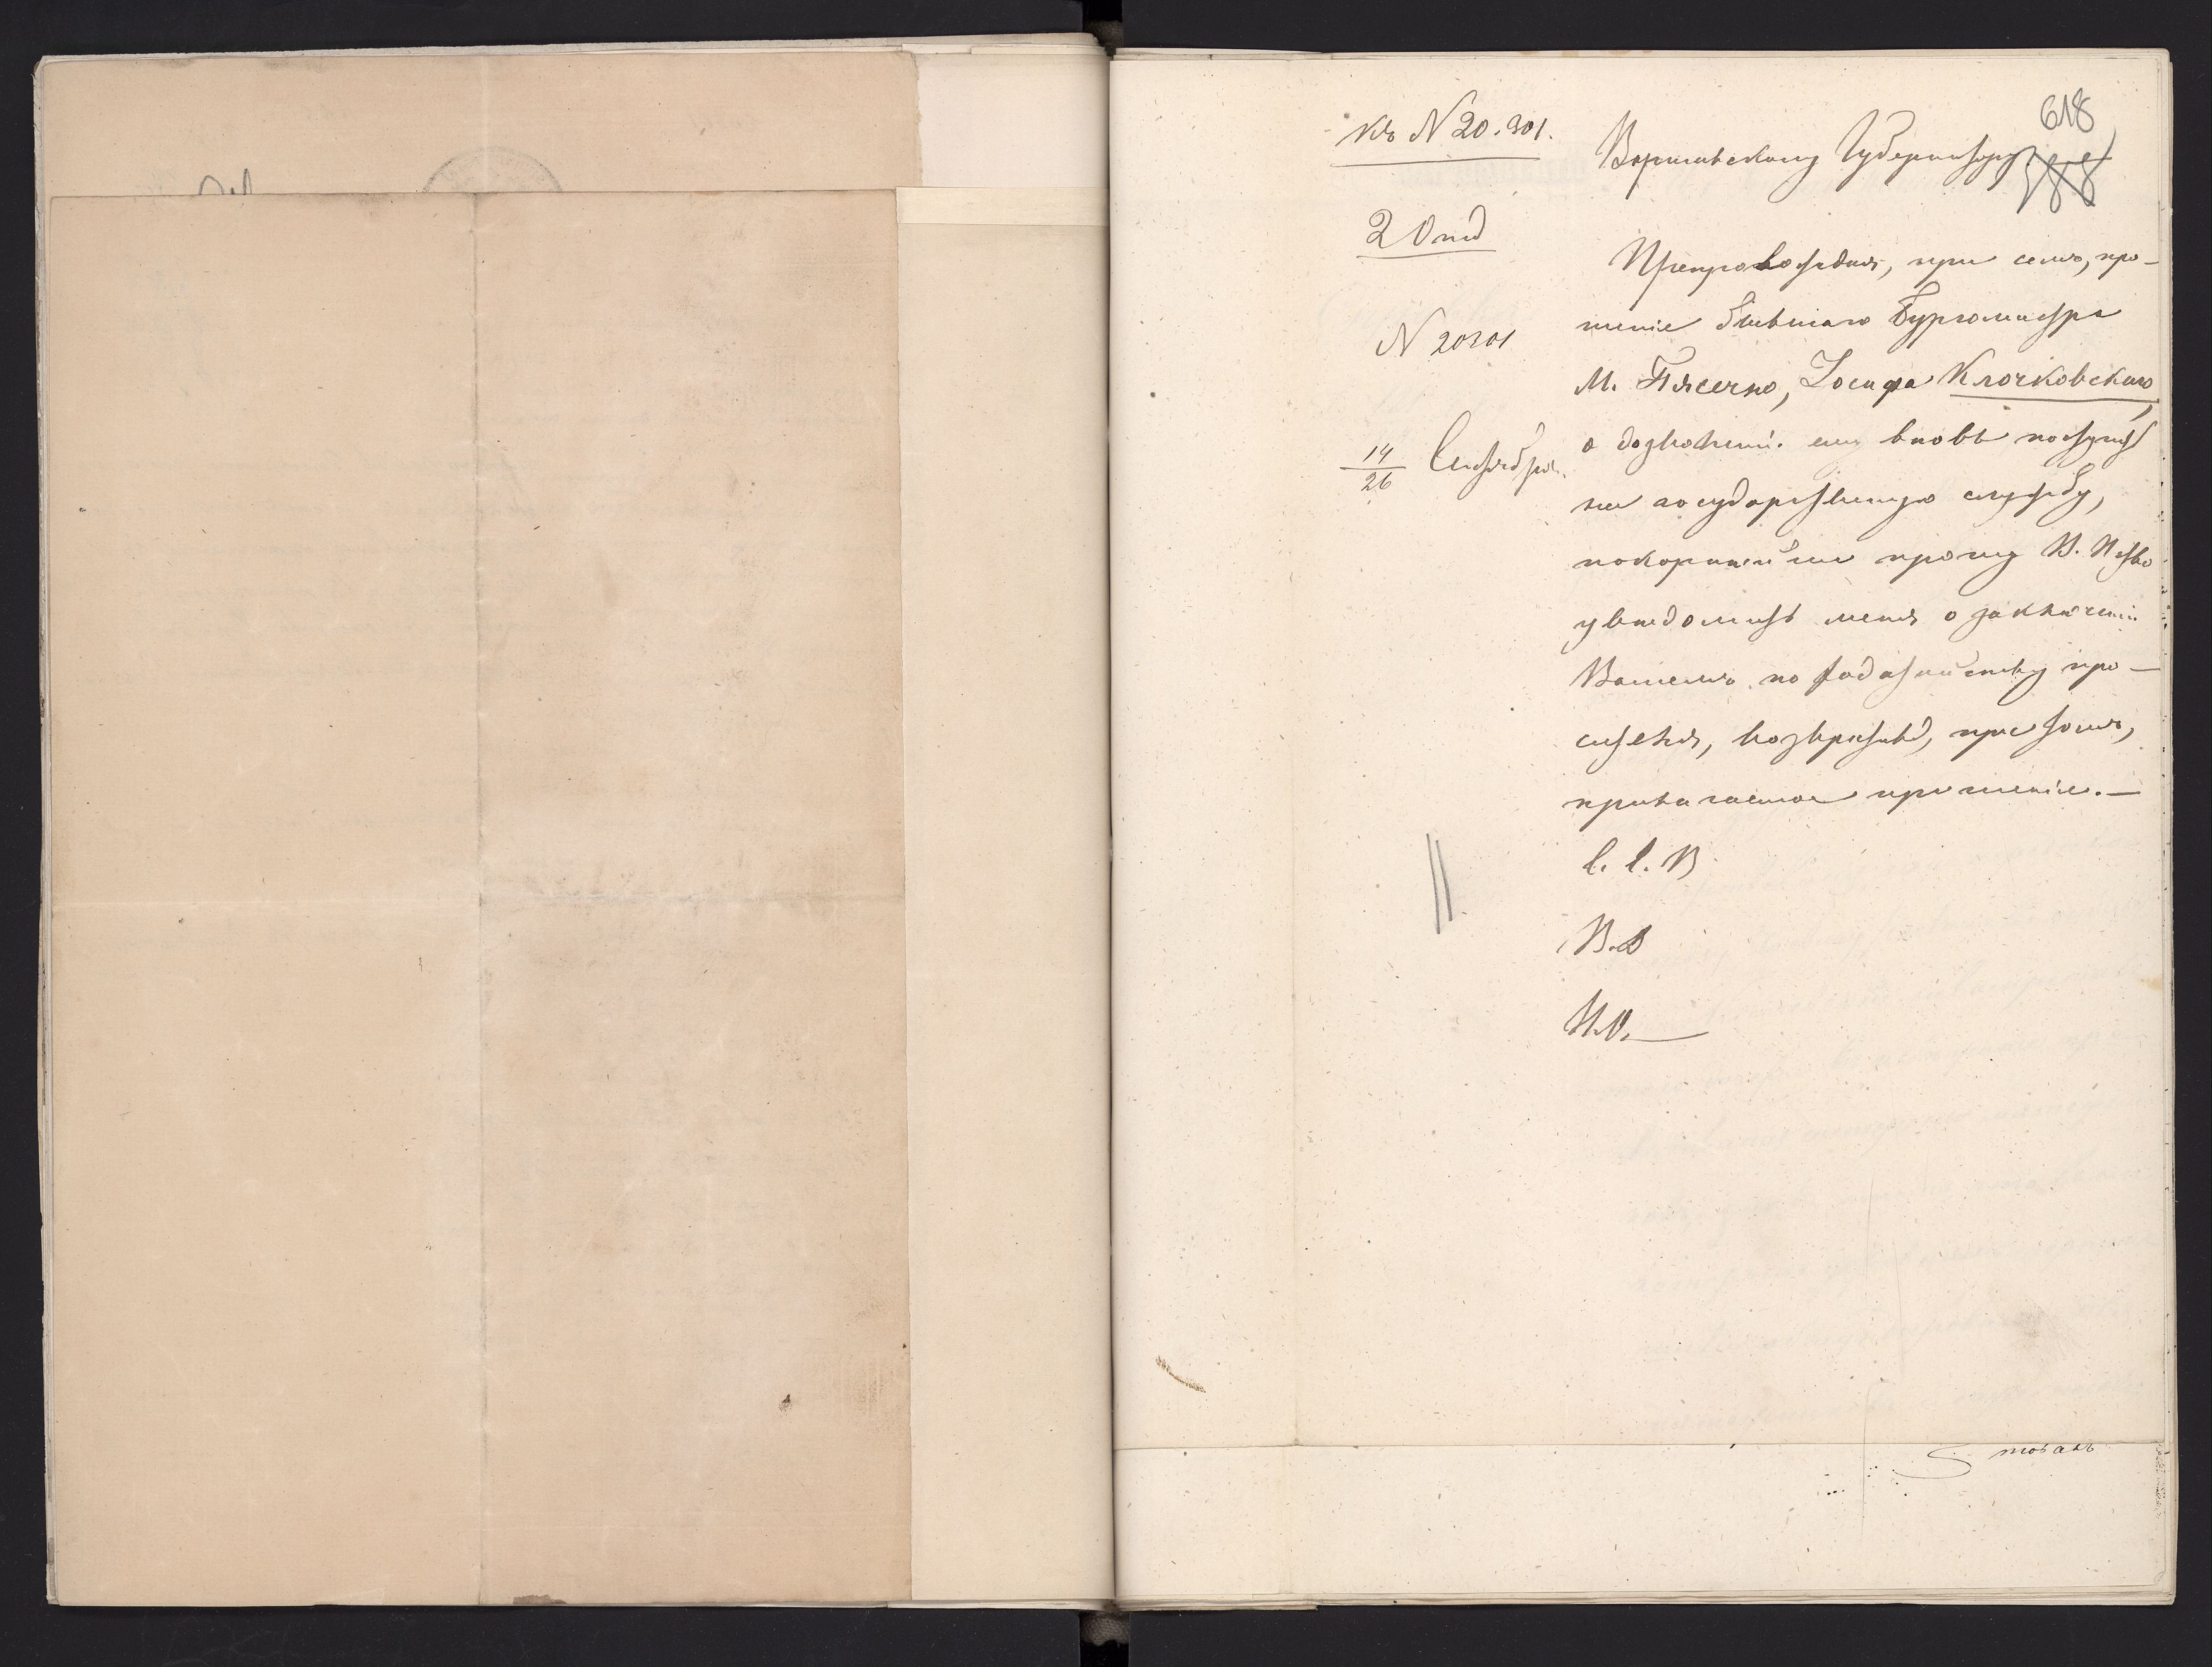 618
Къ N 20.301.
Варшавскому Губернатору
388
2 Отд
Препровождая, при семъ, про-
N 20301
шеніе бывшаго Бургомистра
М. Пясечно, Іосифа Клочковскаго,
14/26 Сентября
о дозволеніи ему вновь поступить
на государственную службу,
покорнѣйше прошу В. Пр-во
увѣдомить меня о заключеніи
Вашемъ по ходатайству про-
сителя, возвративъ, при томъ,
прилагаемое прошеніе.—
С. С. В
В. Д
Н. О.